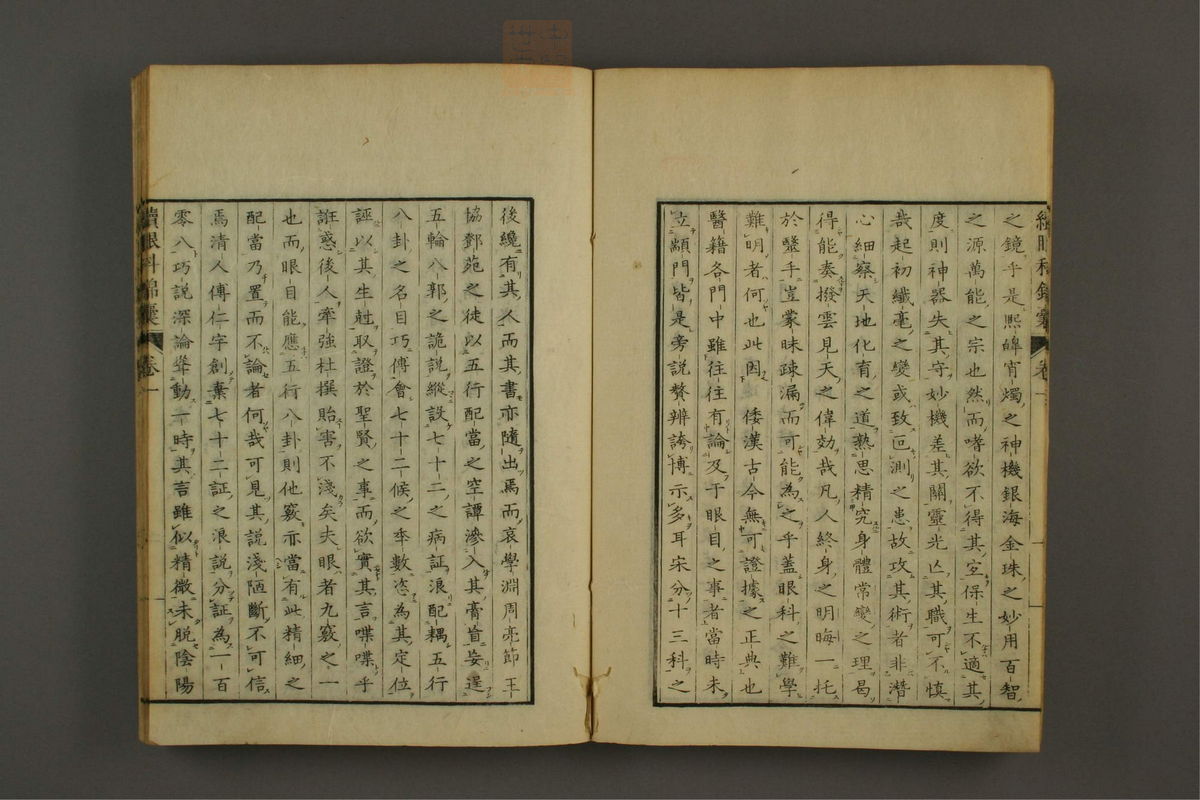 之鏡乎是熙皥宵燭之神機銀海金珠之妙用百智
之源萬能之宗也然而嗜欲不得其宜保生不適其
度則神器失其守妙機差其關靈光亡其職可不慎
哉起初纖毫之變或致叵測之患故攻其術者非潛
心細察天地化育之道熟思精究身體常變之理曷
得能奏撥雲見天之偉効哉凡人終身之明晦一托
於毉手豈蒙昧疎漏而可能為之乎蓋眼科之難學
難明者何也此因倭漢古今無可證據之正典也
醫籍各門中雖往往有論及于眼目之事者當時未
立顓門皆是旁說贅辨誇博示多耳宋分十三科之
後纔有其人而其書亦隨出焉而哀學淵周亮節王
協鄧苑之徒以五行配當之空譚滲入其膏肓妄逞
五輪八郭之詭說縱設七十二之病証浪配耦五行
八卦之名目巧傳會七十二候之率數恣為其定位
誣以其生尅取證於聖賢之事而欲實其言喋喋乎
誑惑後人牽強杜撰貽害不淺矣夫眼者九竅之一
也而眼目能應五行八卦則他竅亦當有此精細之
配當乃置而不論者何哉可見其說淺陋斷不可信
焉清人傅仁宇創棄七十二証之浪說分証為一百
零八巧說深論聳動一時其言雖似精微未脫陰陽
續眼科錦囊 卷一